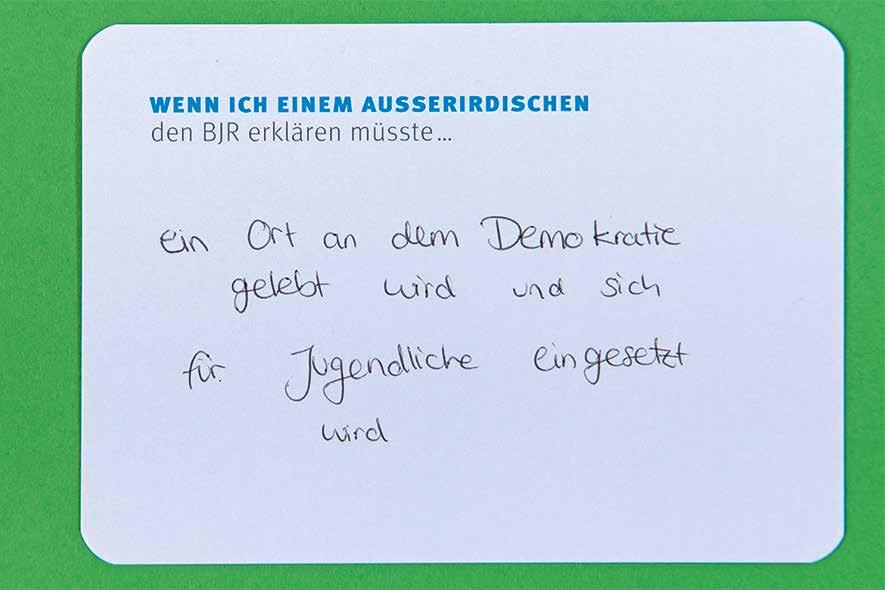 WENN ICH EINEM AUSSERIRDISCHEN
den BJR erklären müsste...
ein Ort an dem Demokratie
gelebt wird und sich
für Jugendliche eingesetzt
wird